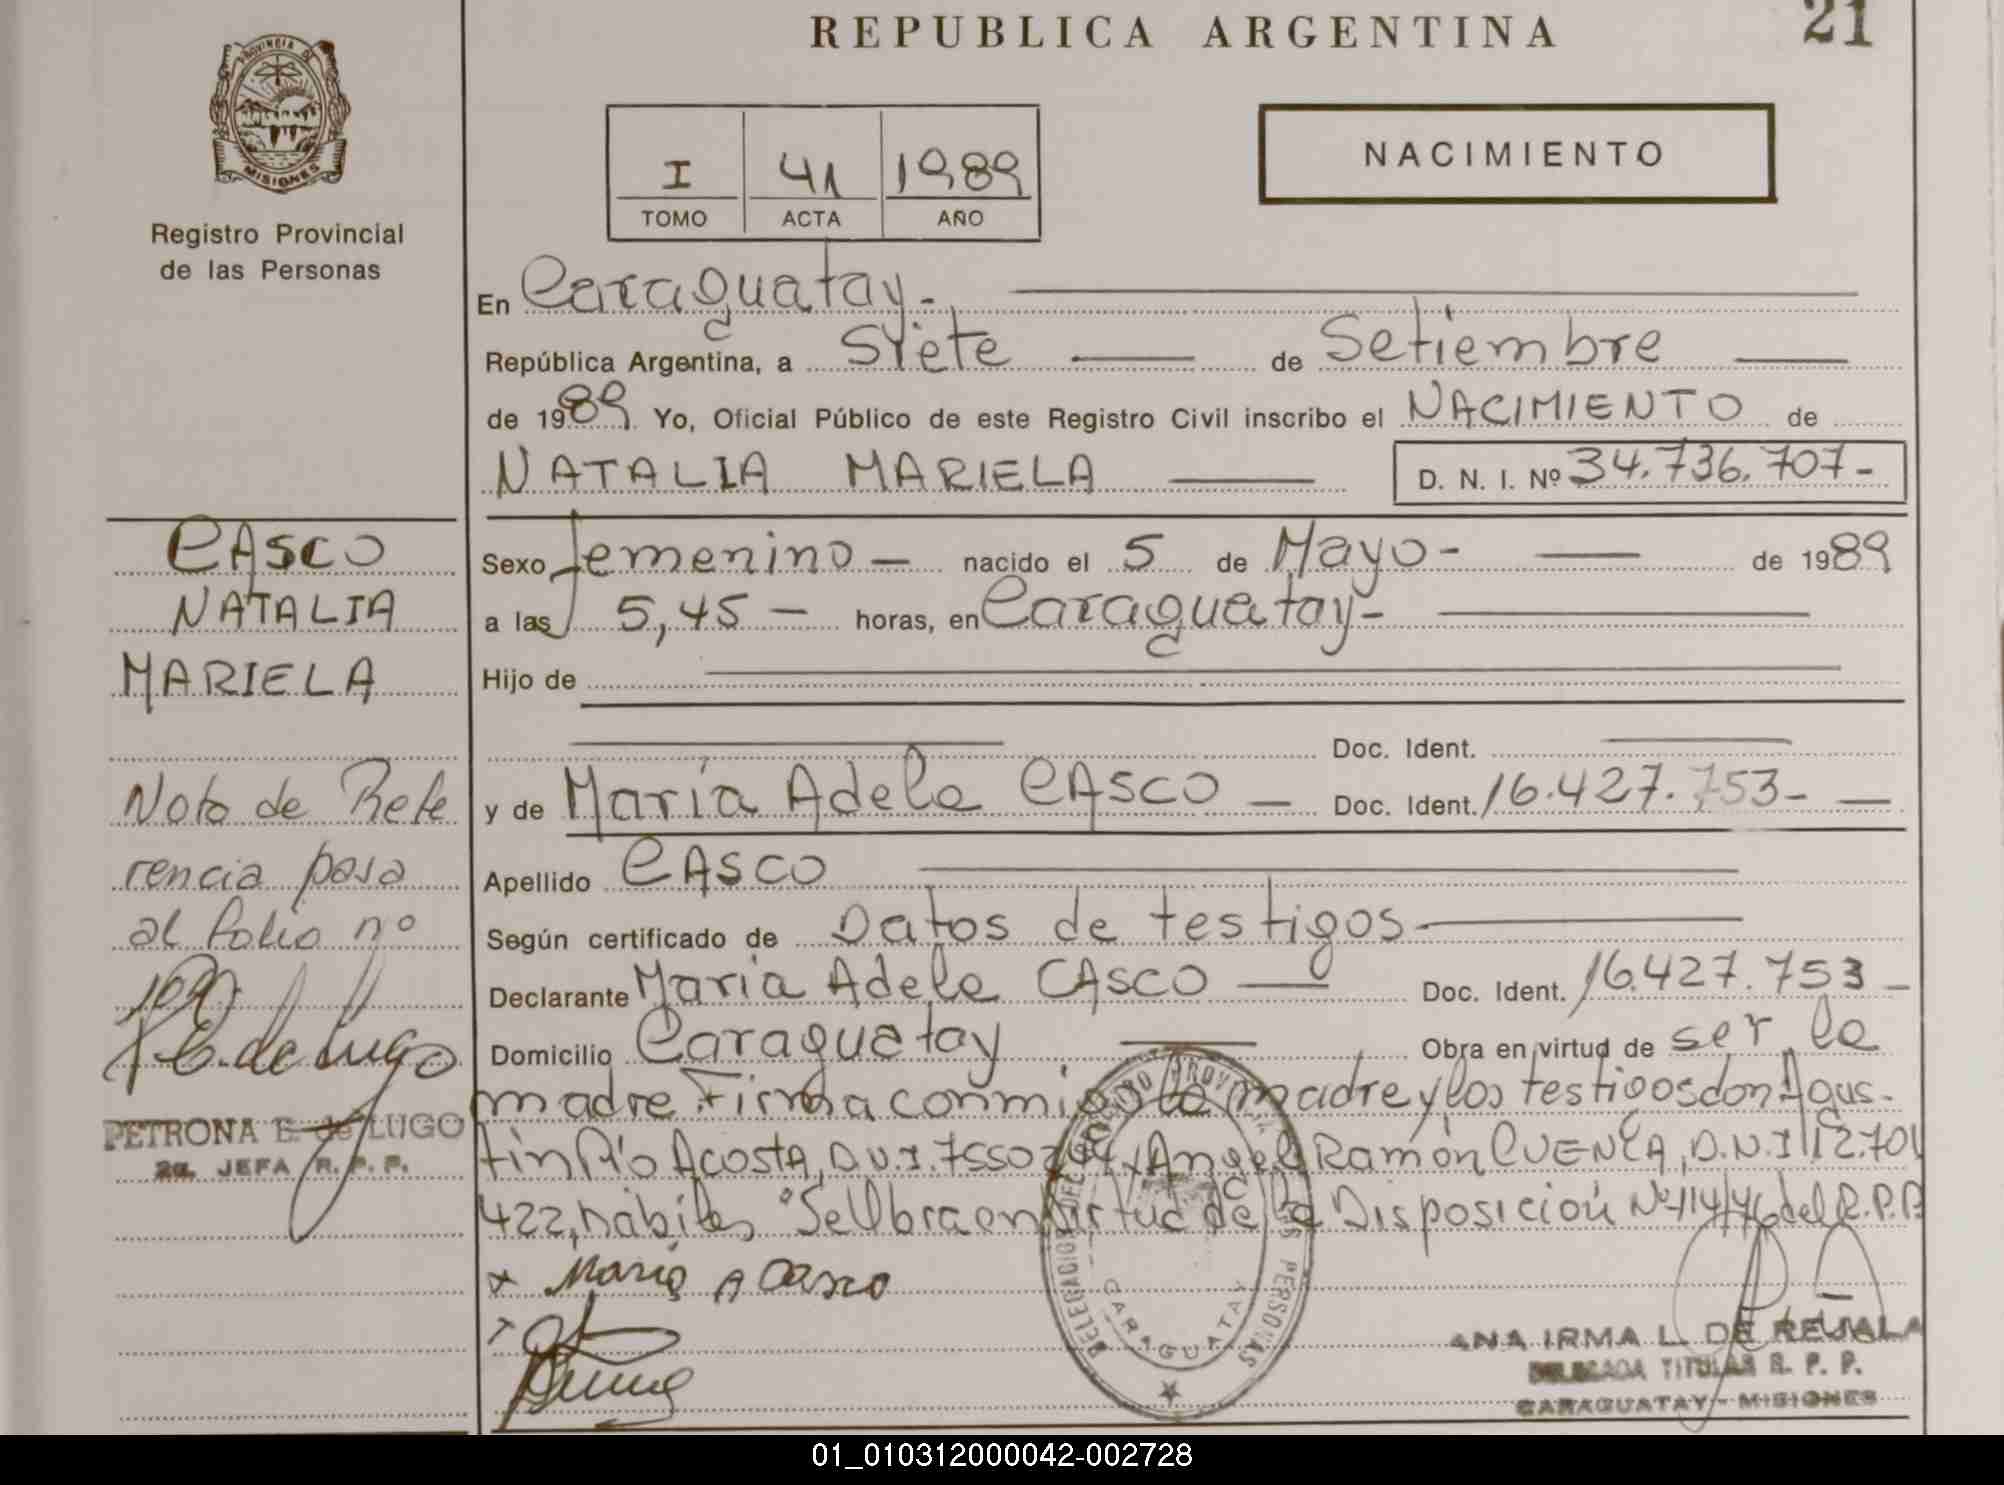 REPUBLICA ARGENTINA
21
PROVINCIA DE
MISIONES
Registro Provincial
de las Personas
I 41 1989
TOMO ACTA AÑO
NACIMIENTO
En Caraguatay.-
República Argentina, a Siete de Setiembre
de 1989 Yo, Oficial Público de este Registro Civil inscribo el NACIMIENTO de
NATALIA MARIELA D. N. I. Nº 34.736.707-
CASCO
NATALIA
MARIELA
Sexo femenino — nacido el 5 de Mayo- de 1989
a las 5,45 — horas, en Caraguatay-
Hijo de
Doc. Ident.
y de María Adela CASCO — Doc. Ident. 16.427.753-
Apellido CASCO
Según certificado de Datos de testigos
Declarante Maria Adela CASCO — Doc. Ident. 16.427.753-
Domicilio Caraguatay Obra en virtud de ser la
madre. Firma conmigo la madre y los testigos don Agus-
tin Pío ACOSTA, D.N.I. Angel Ramón CUENCA, D.N.I 12.701
422, hábiles. Se labra en virtud de la Disposición Nº 114/76 del R.P.P
Nota de Refe
rencia pasa
al folio nº
P E. de Lugo
PETRONA E. de LUGO
2a. JEFA R. P. P.
x Maria A Casco
DELEGACION DEL REGISTRO PROVINCIAL DE LAS PERSONAS
CARAGUATAY
ANA IRMA L. DE REJALA
DELEGADA TITULAR R. P. P.
CARAGUATAY - MISIONES
01_010312000042-002728